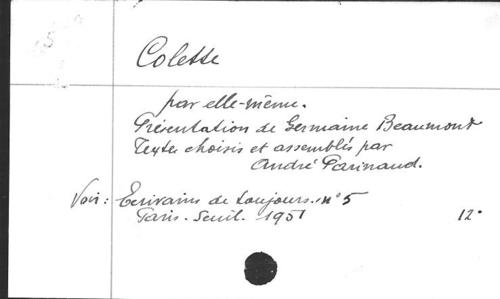 Colette
par elle-même.
Présentation de Germaine Beaumont
Texte choisis et assemblés par
André Parinaud.
Voir : Ecrivains de toujours. n° 5
Paris. Seuil. 1951 12°